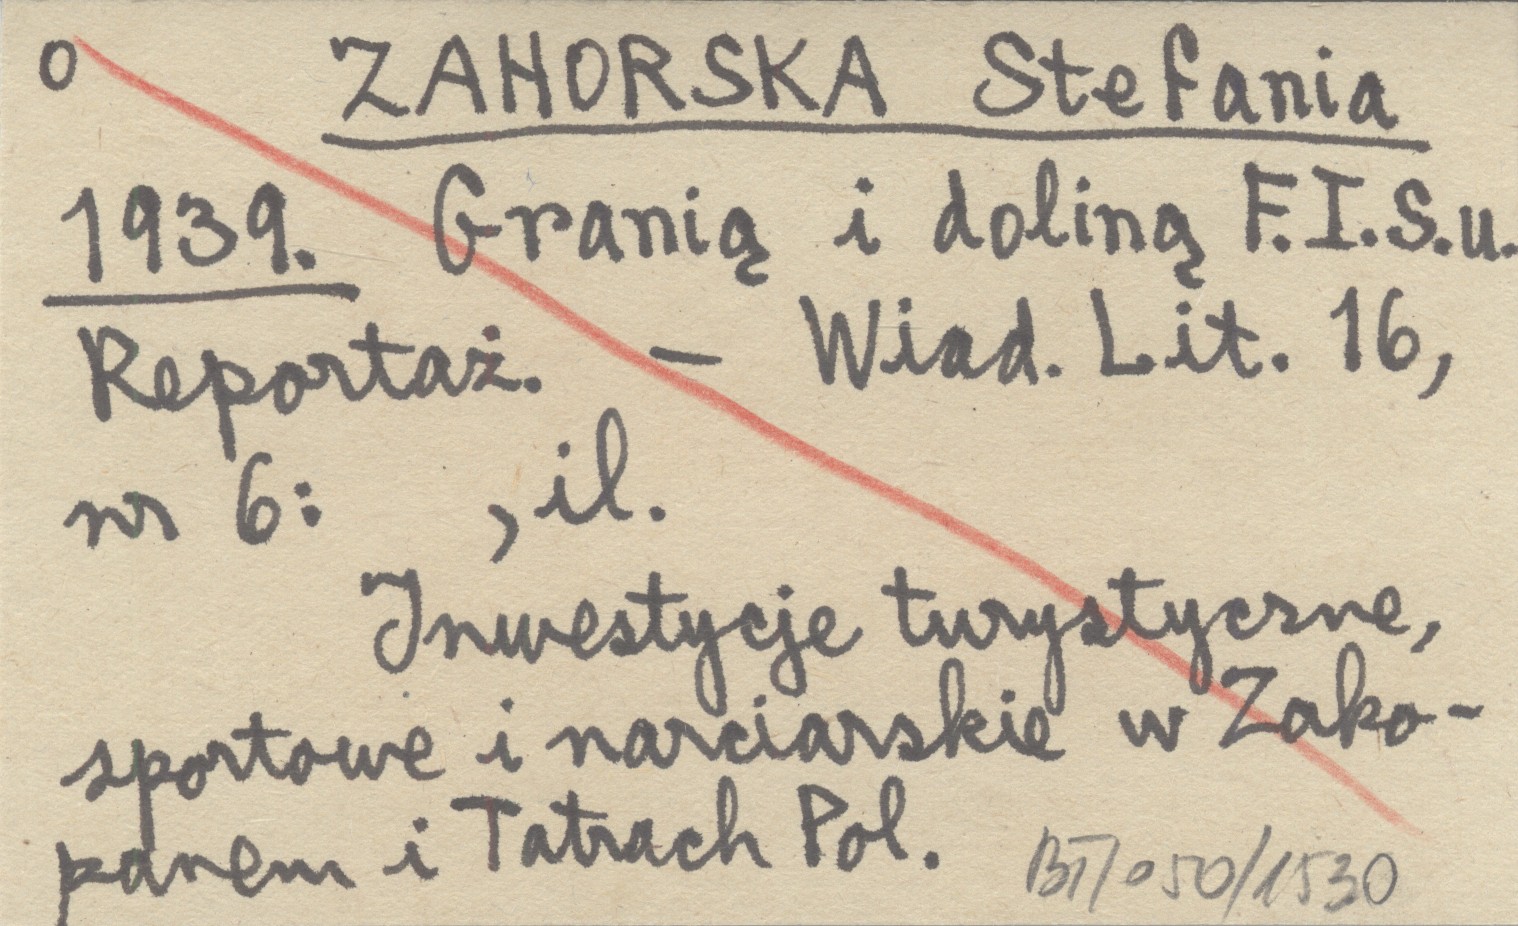 o ZAHORSKA Stefania
1939. Granią i doliną F.I.S.u.
Reportaż. – Wiad. Lit. 16,
nr 6: , il.
Inwestycje turystyczne,
sportowe i narciarskie w Zako-
panem i Tatrach Pol.
BT/050/1530